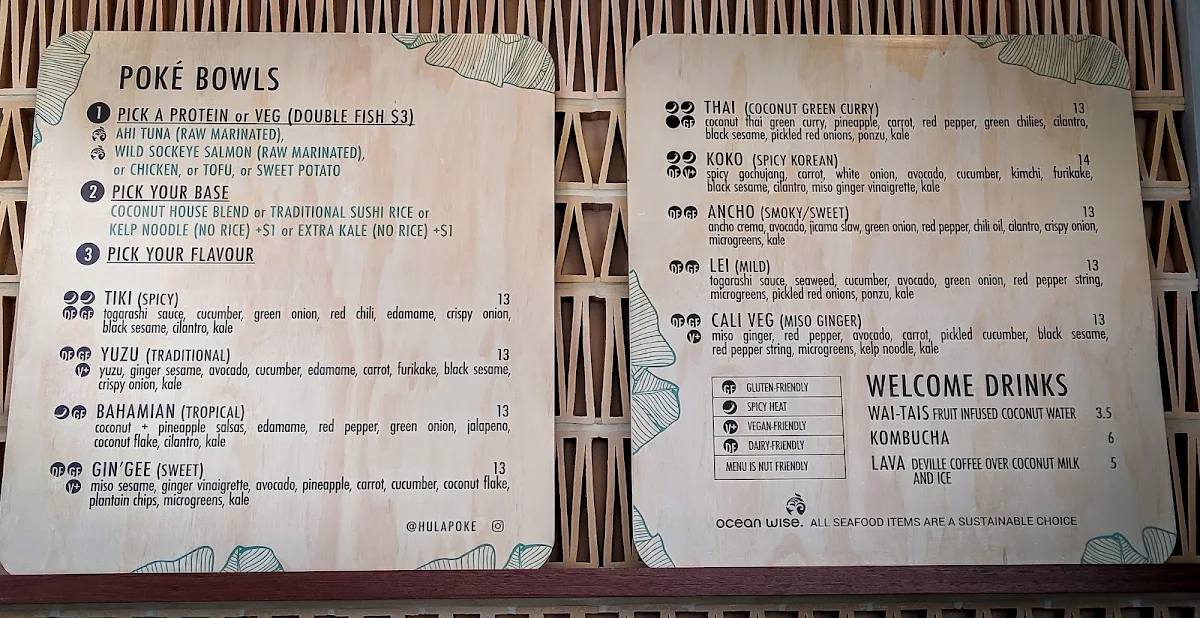 POKÉ BOWLS
1 PICK A PROTEIN or VEG (DOUBLE FISH $3)
AHI TUNA (RAW MARINATED),
WILD SOCKEYE SALMON (RAW MARINATED),
or CHICKEN, or TOFU, or SWEET POTATO
2 PICK YOUR BASE
COCONUT HOUSE BLEND or TRADITIONAL SUSHI RICE or
KELP NOODLE (NO RICE) +$1 or EXTRA KALE (NO RICE) +$1
3 PICK YOUR FLAVOUR
TIKI (SPICY) 13
DF GF togarashi sauce, cucumber, green onion, red chili, edamame, crispy onion,
black sesame, cilantro, kale
DF GF YUZU (TRADITIONAL) 13
V+ yuzu, ginger sesame, avocado, cucumber, edamame, carrot, furikake, black sesame,
crispy onion, kale
GF BAHAMIAN (TROPICAL) 13
coconut + pineapple salsas, edamame, red pepper, green onion, jalapeno,
coconut flake, cilantro, kale
DF GF GIN'GEE (SWEET) 13
V+ miso sesame, ginger vinaigrette, avocado, pineapple, carrot, cucumber, coconut flake,
plantain chips, microgreens, kale
@HULAPOKE
THAI (COCONUT GREEN CURRY) 13
GF coconut thai green curry, pineapple, carrot, red pepper, green chilies, cilantro,
black sesame, pickled red onions, ponzu, kale
KOKO (SPICY KOREAN) 14
DF V+ spicy gochujang, carrot, white onion, avocado, cucumber, kimchi, furikake,
black sesame, cilantro, miso ginger vinaigrette, kale
DF GF ANCHO (SMOKY/SWEET) 13
ancho crema, avocado, jicama slaw, green onion, red pepper, chili oil, cilantro, crispy onion,
microgreens, kale
DF GF LEI (MILD) 13
togarashi sauce, seaweed, cucumber, avocado, green onion, red pepper string,
microgreens, pickled red onions, ponzu, kale
DF GF CALI VEG (MISO GINGER) 13
V+ miso ginger, red pepper, avocado, carrot, pickled cucumber, black sesame,
red pepper string, microgreens, kelp noodle, kale
GF GLUTEN-FRIENDLY
SPICY HEAT
V+ VEGAN-FRIENDLY
DF DAIRY-FRIENDLY
MENU IS NUT FRIENDLY
WELCOME DRINKS
WAI-TAIS FRUIT INFUSED COCONUT WATER 3.5
KOMBUCHA 6
LAVA DEVILLE COFFEE OVER COCONUT MILK 5
AND ICE
ocean wise. ALL SEAFOOD ITEMS ARE A SUSTAINABLE CHOICE